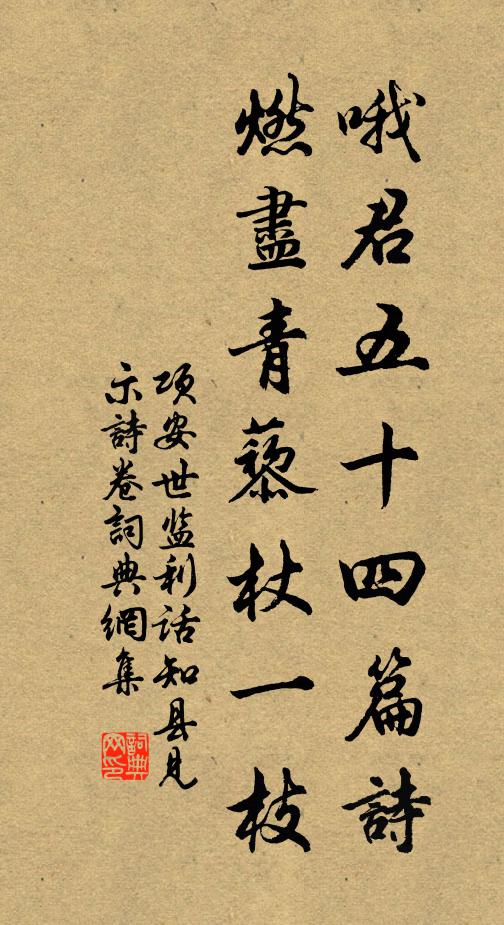 哦君五十四篇詩
燃盡青藜杖一枝
项安世监利话知县见
示詩卷詞典網集
詞典网印